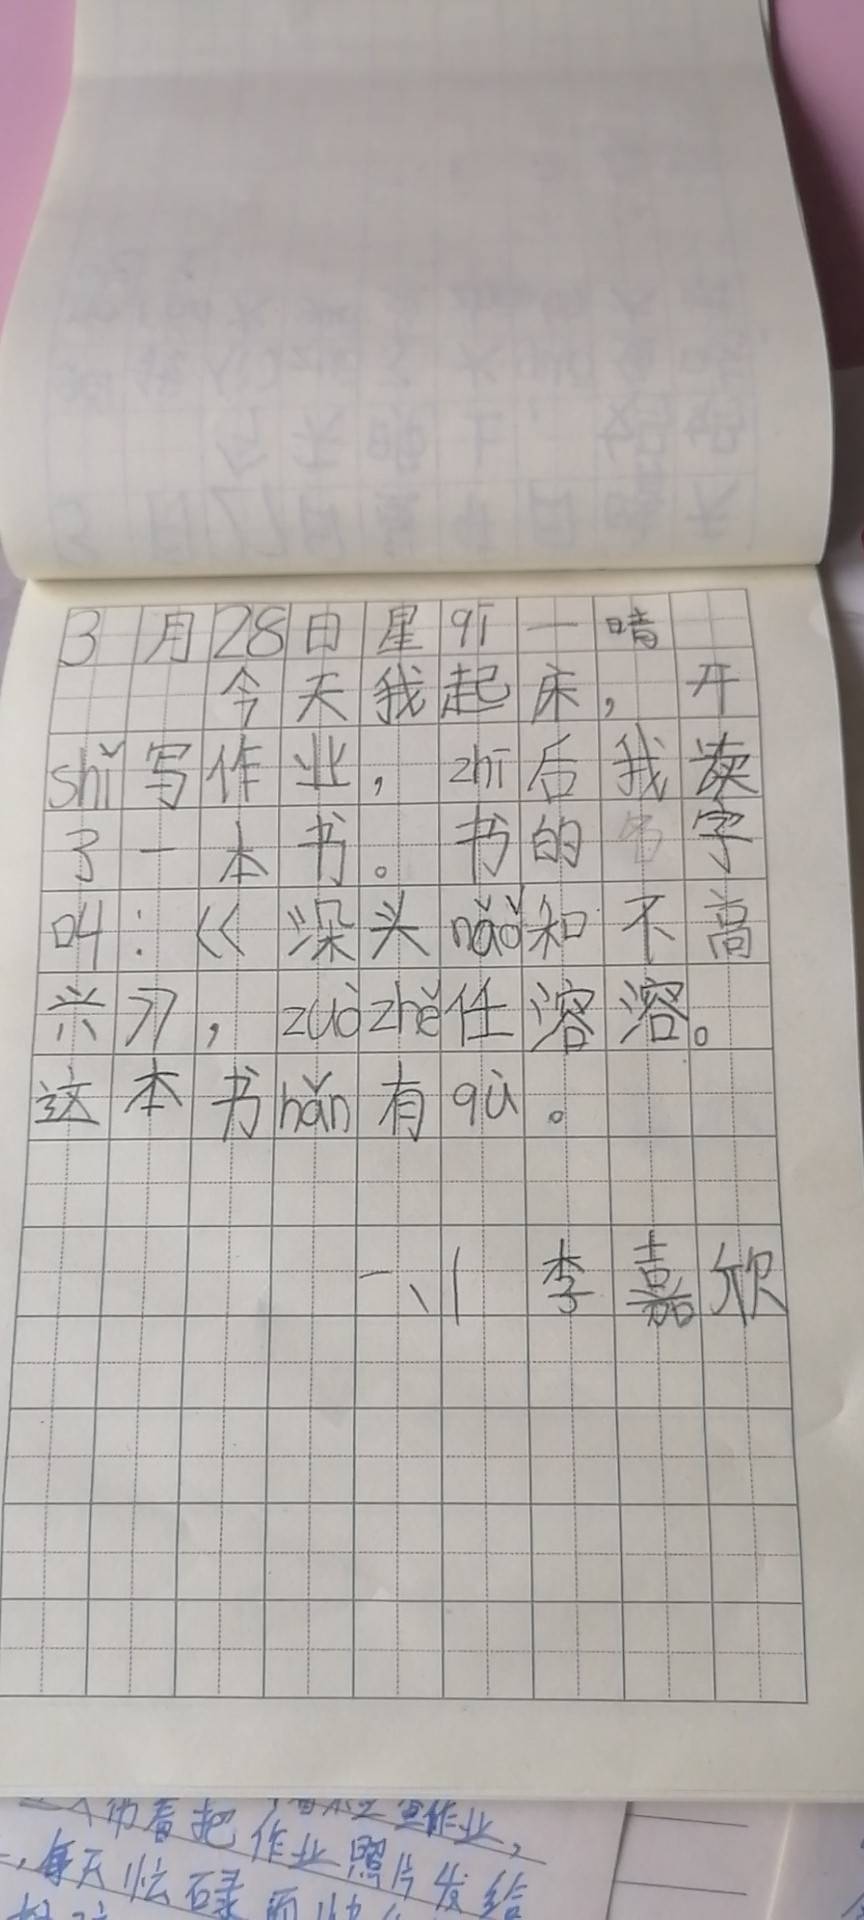 3月28日星qī一晴
今天我起床，开
shǐ写作业，zhī后我读
了一本书。书的名字
叫：《没头nǎo和不高
兴》，zuòzhě任溶溶。
这本书hǎn有qù。
一、1 李嘉欣
作业，
着把作业照片发给
，每天忙碌而